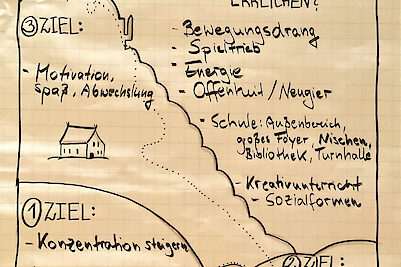 ERREICHEN?
③ ZIEL:
- Motivation,
Spaß, Abwechslung
- Bewegungsdrang
- Spieltrieb
- Energie
- Offenheit / Neugier
- Schule: Außenbereich,
großes Foyer, Nischen,
Bibliothek, Turnhalle
Kreativunterricht
- Sozialformen
① ZIEL:
- Konzentration steigern
② ZIEL: